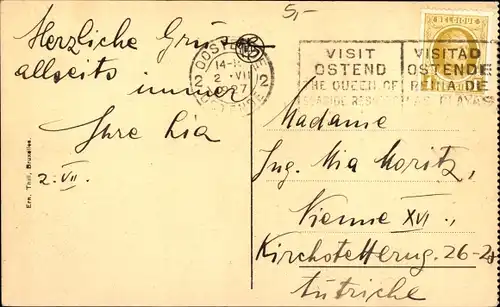 5,-
Herzliche Grüße
allseits immer
Ihre Lia
2. VII.
Ern. Thill, Bruxelles.
OOSTENDE
14-
2 2 VII 2
27
OSTENDE
VISIT
OSTEND
THE QUEEN OF
SEASIDE RESORTS
VISITAD
OSTENDE
REINA DE
LAS PLAYAS
BELGIQUE
Madame
Ing. Mia Moritz,
Vienne XVI.,
26-28
Autriche